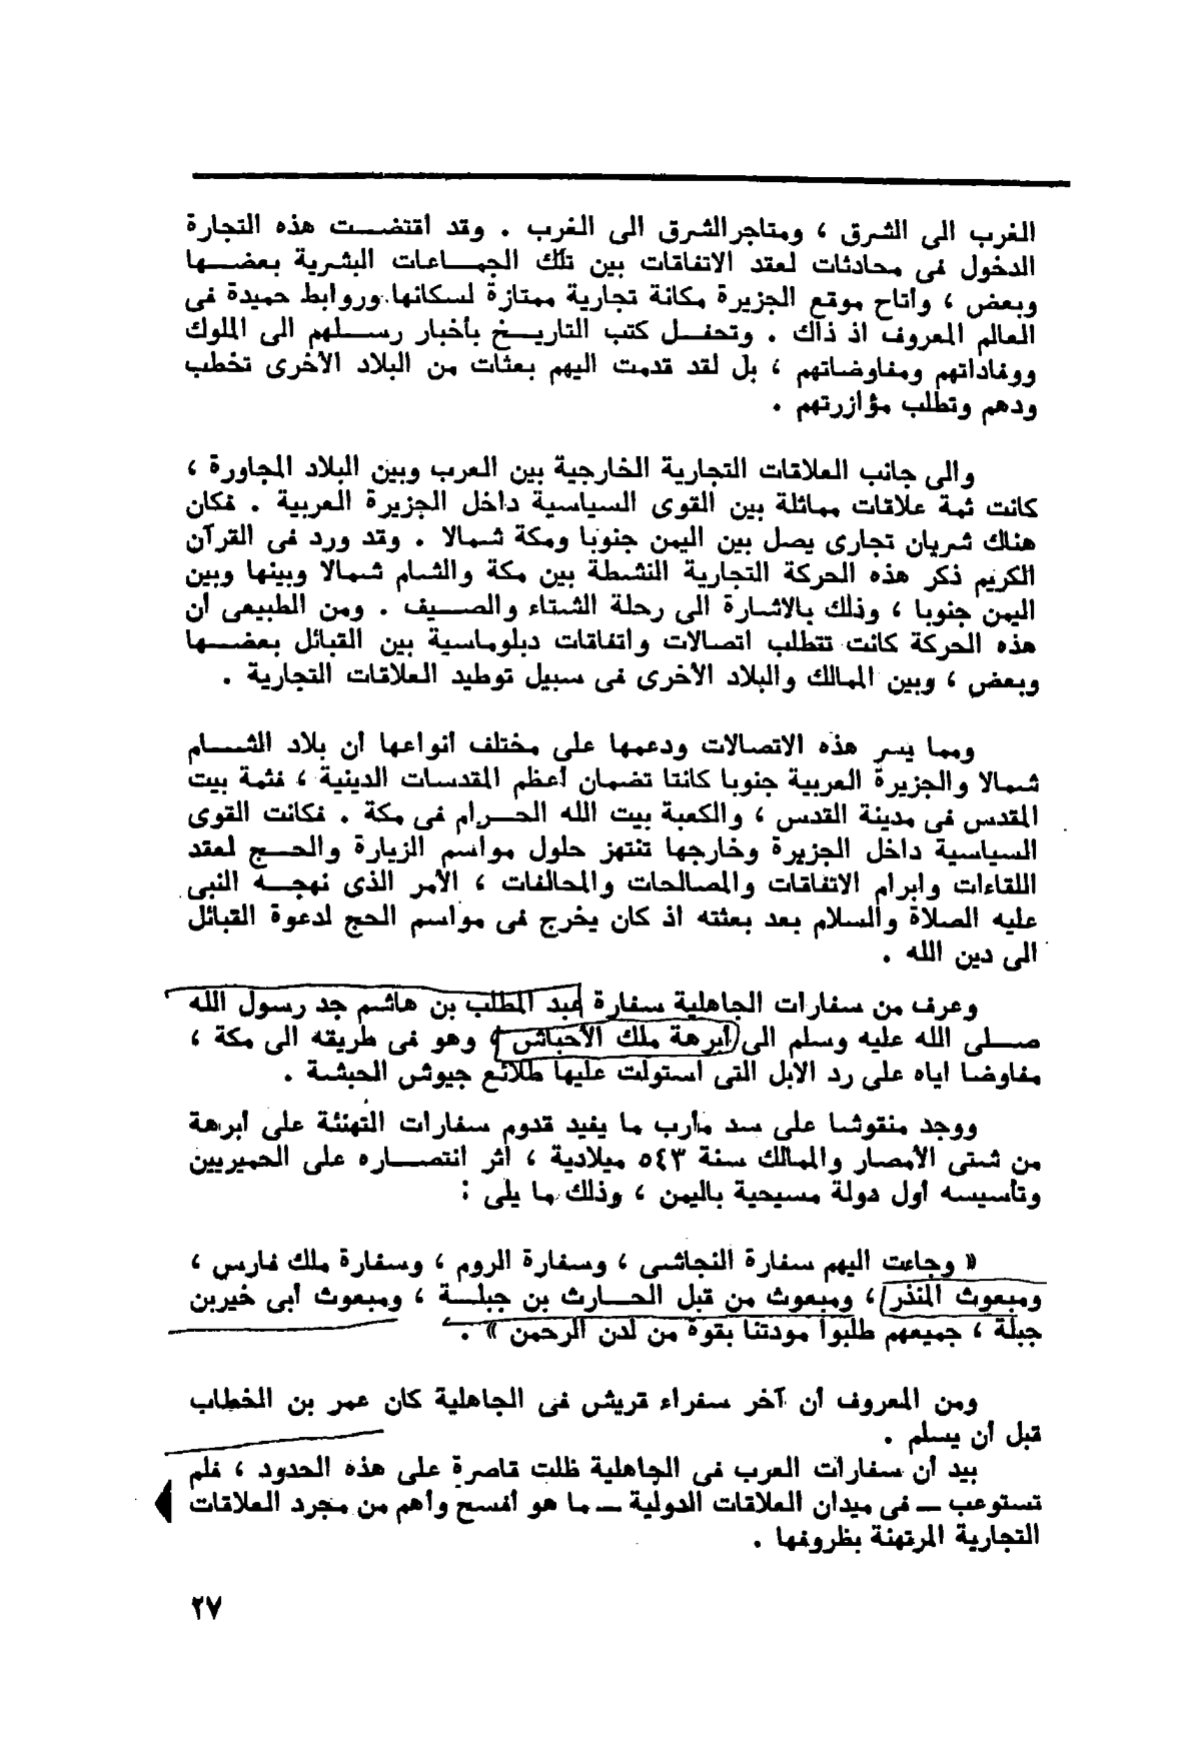 الغرب الى الشرق ، ومتاجر الشرق الى الغرب . وقد اقتضت هذه التجارة
الدخول فى محادثات لعقد الاتفاقات بين تلك الجماعات البشرية بعضها
وبعض ، وأتاح موقع الجزيرة مكانة تجارية ممتازة لسكانها وروابط حميدة فى
العالم المعروف اذ ذاك . وتحفل كتب التاريخ بأخبار رسلهم الى الملوك
ووفاداتهم ومفاوضاتهم ، بل لقد قدمت اليهم بعثات من البلاد الأخرى تخطب
ودهم وتطلب مؤازرتهم .
والى جانب العلاقات التجارية الخارجية بين العرب وبين البلاد المجاورة ،
كانت ثمة علاقات مماثلة بين القوى السياسية داخل الجزيرة العربية . فكان
هناك شريان تجارى يصل بين اليمن جنوبا ومكة شمالا . وقد ورد فى القرآن
الكريم ذكر هذه الحركة التجارية النشطة بين مكة والشام شمالا وبينها وبين
اليمن جنوبا ، وذلك بالاشارة الى رحلة الشتاء والصيف . ومن الطبيعى أن
هذه الحركة كانت تتطلب اتصالات واتفاقات دبلوماسية بين القبائل بعضها
وبعض ، وبين الممالك والبلاد الأخرى فى سبيل توطيد العلاقات التجارية .
ومما يسر هذه الاتصالات ودعمها على مختلف أنواعها أن بلاد الشام
شمالا والجزيرة العربية جنوبا كانتا تضمان أعظم المقدسات الدينية ، فثمة بيت
المقدس فى مدينة القدس ، والكعبة بيت الله الحرام فى مكة . فكانت القوى
السياسية داخل الجزيرة وخارجها تنتهز حلول مواسم الزيارة والحج لعقد
اللقاءات وابرام الاتفاقات والمصالحات والمحالفات ، الأمر الذى نهجه النبى
عليه الصلاة والسلام بعد بعثته اذ كان يخرج فى مواسم الحج لدعوة القبائل
الى دين الله .
وعرف من سفارات الجاهلية سفارة عبد المطلب بن هاشم جد رسول الله
صلى الله عليه وسلم الى أبرهة ملك الأحباش ، وهو فى طريقه الى مكة ،
مفاوضا اياه على رد الابل التى استولت عليها طلائع جيوش الحبشة .
ووجد منقوشا على سد مأرب ما يفيد قدوم سفارات التهنئة على أبرهة
من شتى الأمصار والممالك سنة ٥٤٣ ميلادية ، اثر انتصاره على الحميريين
وتأسيسه أول دولة مسيحية باليمن ، وذلك ما يلى :
« وجاءت اليهم سفارة النجاشى ، وسفارة الروم ، وسفارة ملك فارس ،
ومبعوث المنذر ، ومبعوث من قبل الحارث بن جبلة ، ومبعوث أبى خيربن
جبلة ، جميعهم طلبوا مودتنا بقوة من لدن الرحمن » .
ومن المعروف أن آخر سفراء قريش فى الجاهلية كان عمر بن الخطاب
قبل أن يسلم .
بيد أن سفارات العرب فى الجاهلية ظلت قاصرة على هذه الحدود ، فلم
تستوعب ــ فى ميدان العلاقات الدولية ــ ما هو أفسح وأهم من مجرد العلاقات
التجارية المرتهنة بظروفها .
٢٧